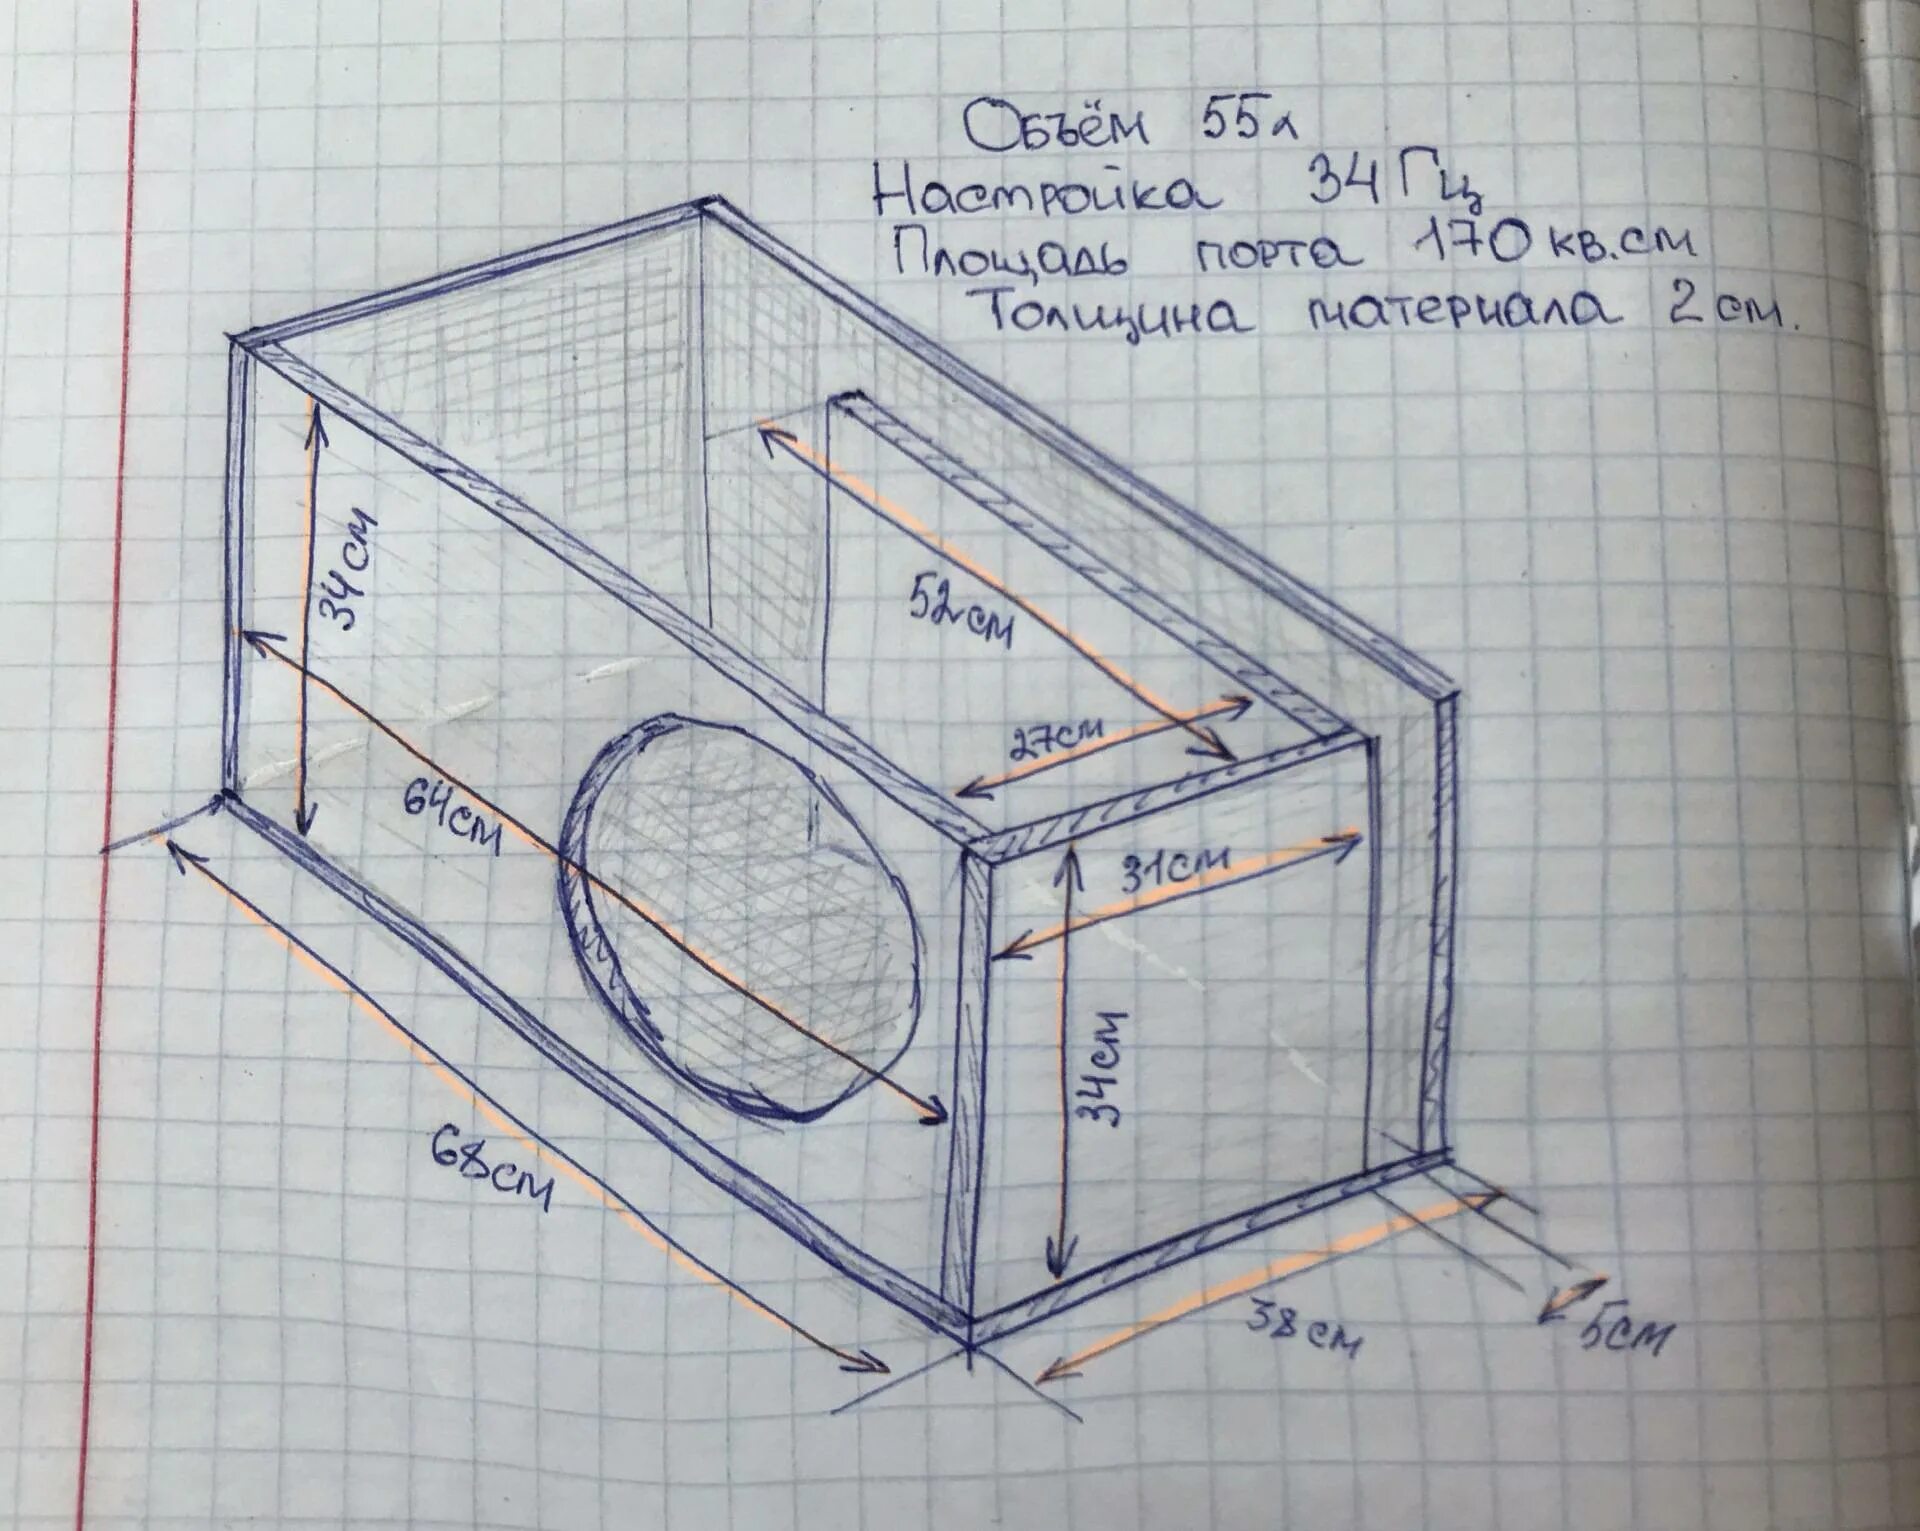 Объём 55л
Настройка 34Гц
Площадь порта 170кв.см
Толщина материала 2см.
34см
52см
27см
64см
31см
34см
68см
38см
5см